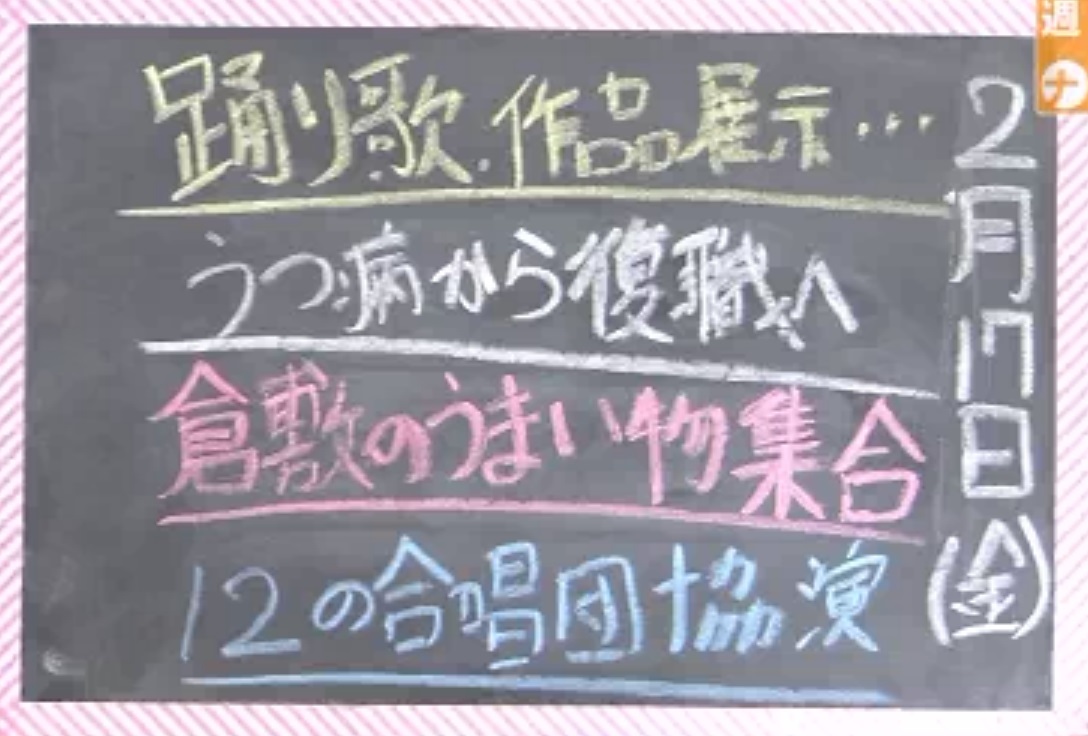 週
ナ
2月17日(金)
踊り歌.作品展示…
うつ病から復職へ
倉敷のうまい物集合
12の合唱団協演